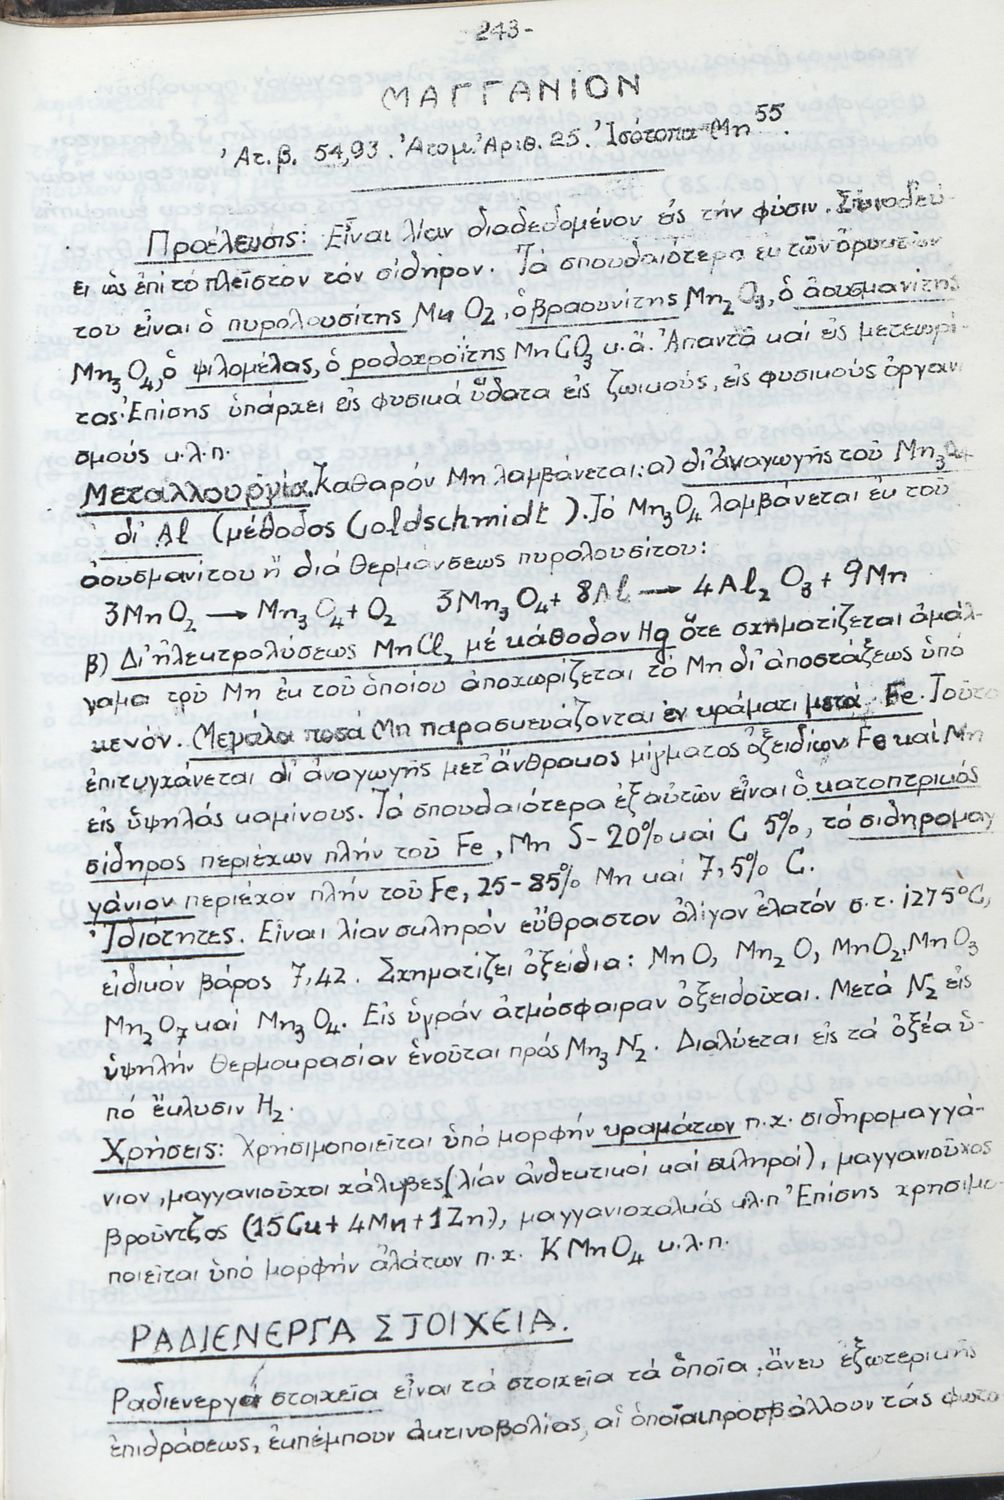 -243-
ΜΑΓΓΑΝΙΟΝ
Ἀτ. β. 54,93. Ἀτομ. Ἀριθ. 25. Ἰσότοπα Mn⁵⁵.
Προέλευσις: Εἶναι λίαν διαδεδομένον εἰς τήν φύσιν. Συνοδεύ-
ει ὡς ἐπί τό πλεῖστον τόν σίδηρον. Τά σπουδαιότερα ἐκ τῶν ὀρυκτῶν
του εἶναι ὁ πυρολουσίτης MnO₂, ὁ βραουνίτης Mn₂O₃, ὁ ἀουσμανίτης
Mn₃O₄, ὁ ψιλομέλας, ὁ ροδοχροΐτης MnCO₃ κ.ἄ. Ἀπαντᾶ καί εἰς μετεωρί-
τας. Ἐπίσης ὑπάρχει εἰς φυσικά ὕδατα εἰς ζωικούς, εἰς φυσικούς ὀργανι
σμούς κ.λ.π.
Μεταλλουργία. Καθαρόν Mn λαμβάνεται: α) δι' ἀναγωγῆς τοῦ Mn₃O₄
δι' Al (μέθοδος Goldschmidt). Τό Mn₃O₄ λαμβάνεται ἐκ τοῦ
ἀουσμανίτου ἤ διά θερμάνσεως πυρολουσίτου:
3MnO₂ → Mn₃O₄ + O₂ 3Mn₃O₄ + 8Al → 4Al₂O₃ + 9Mn
β) Δι' ἠλεκτρολύσεως MnCl₂ μέ κάθοδον Hg ὅτε σχηματίζεται ἀμάλ-
γαμα τοῦ Mn ἐκ τοῦ ὁποίου ἀποχωρίζεται τό Mn δι' ἀποστάξεως ὑπό
κενόν. Μεγάλα ποσά Mn παρασκευάζονται ἐν κράματι μετά Fe. Τοῦτο
ἐπιτυγχάνεται δι' ἀναγωγῆς μετ' ἄνθρακος μίγματος ὀξειδίων Fe καί Mn
εἰς ὑψηλάς καμίνους. Τά σπουδαιότερα ἐξ αὐτῶν εἶναι ὁ κατοπτρικός
σίδηρος περιέχων πλήν τοῦ Fe, Mn 5-20% καί C 5%, τό σιδηρομαγ
γάνιον περιέχον πλήν τοῦ Fe, 25-85% Mn καί 7,5% C.
Ἰδιότητες. Εἶναι λίαν σκληρόν εὔθραστον ὀλίγον ἐλατόν σ.τ. 1275°C,
εἰδικόν βάρος 7,42. Σχηματίζει ὀξείδια: MnO, Mn₂O, MnO₂, MnO₃
Mn₂O₇ καί Mn₃O₄. Εἰς ὑγράν ἀτμόσφαιραν ὀξειδοῦται. Μετά N₂ εἰς
ὑψηλήν θερμοκρασίαν ἑνοῦται πρός Mn₃N₂. Διαλύεται εἰς τά ὀξέα ὑ-
πό ἔκλυσιν H₂.
Χρήσεις: Χρησιμοποιεῖται ὑπό μορφήν κραμάτων π.χ. σιδηρομαγγά-
νιον, μαγγανιοῦχοι χάλυβες (λίαν ἀνθεκτικοί καί σκληροί), μαγγανιοῦχος
βροῦντζος (15Cu + 4Mn + 1Zn), μαγγανιοχαλκός κ.λ.π. Ἐπίσης χρησιμο-
ποιεῖται ὑπό μορφήν ἁλάτων π.χ. KMnO₄ κ.λ.π.
ΡΑΔΙΕΝΕΡΓΑ ΣΤΟΙΧΕΙΑ.
Ραδιενεργά στοιχεῖα εἶναι τά στοιχεῖα τά ὁποῖα, ἄνευ ἐξωτερικῆς
ἐπιδράσεως, ἐκπέμπουν ἀκτινοβολίας, αἱ ὁποῖαι προσβάλλουν τάς φωτο